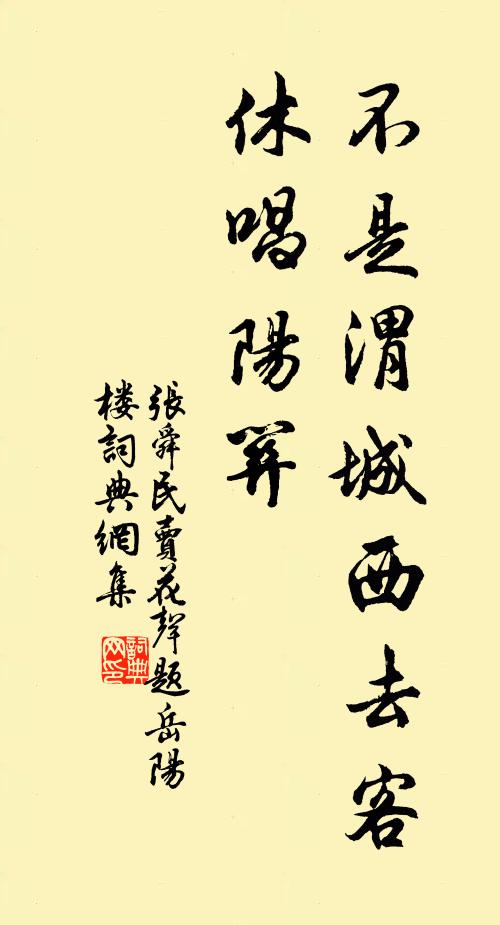 不是渭城西去客
休唱陽關
張舜民賣花聲題岳陽
楼詞典網集
詞典
网印